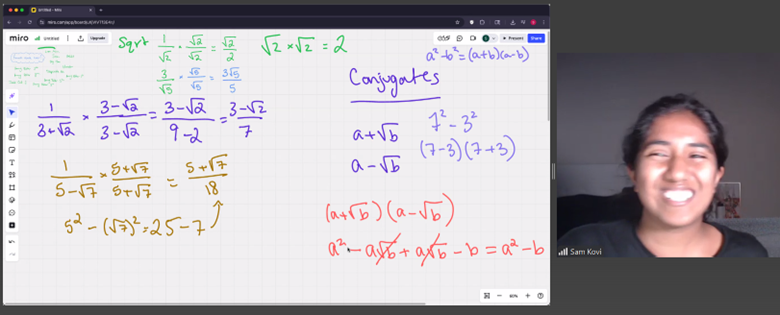 Untitled - Miro
miro.com/app/board/
miro
Untitled
Upgrade
Present
Share
Sqrt 1/√2 · √2/√2 = √2/2 √2 × √2 = 2
3/√5 × √5/√5 = 3√5/5
a² - b² = (a+b)(a-b)
Conjugates
1/(3+√2) × (3-√2)/(3-√2) = (3-√2)/(9-2) = (3-√2)/7
a + √b
a - √b
7² - 3²
(7-3)(7+3)
1/(5-√7) × (5+√7)/(5+√7) = (5+√7)/18
5² - (√7)² = 25 - 7
(a+√b)(a-√b)
a² - a√b + a√b - b = a² - b
Sam Kovi